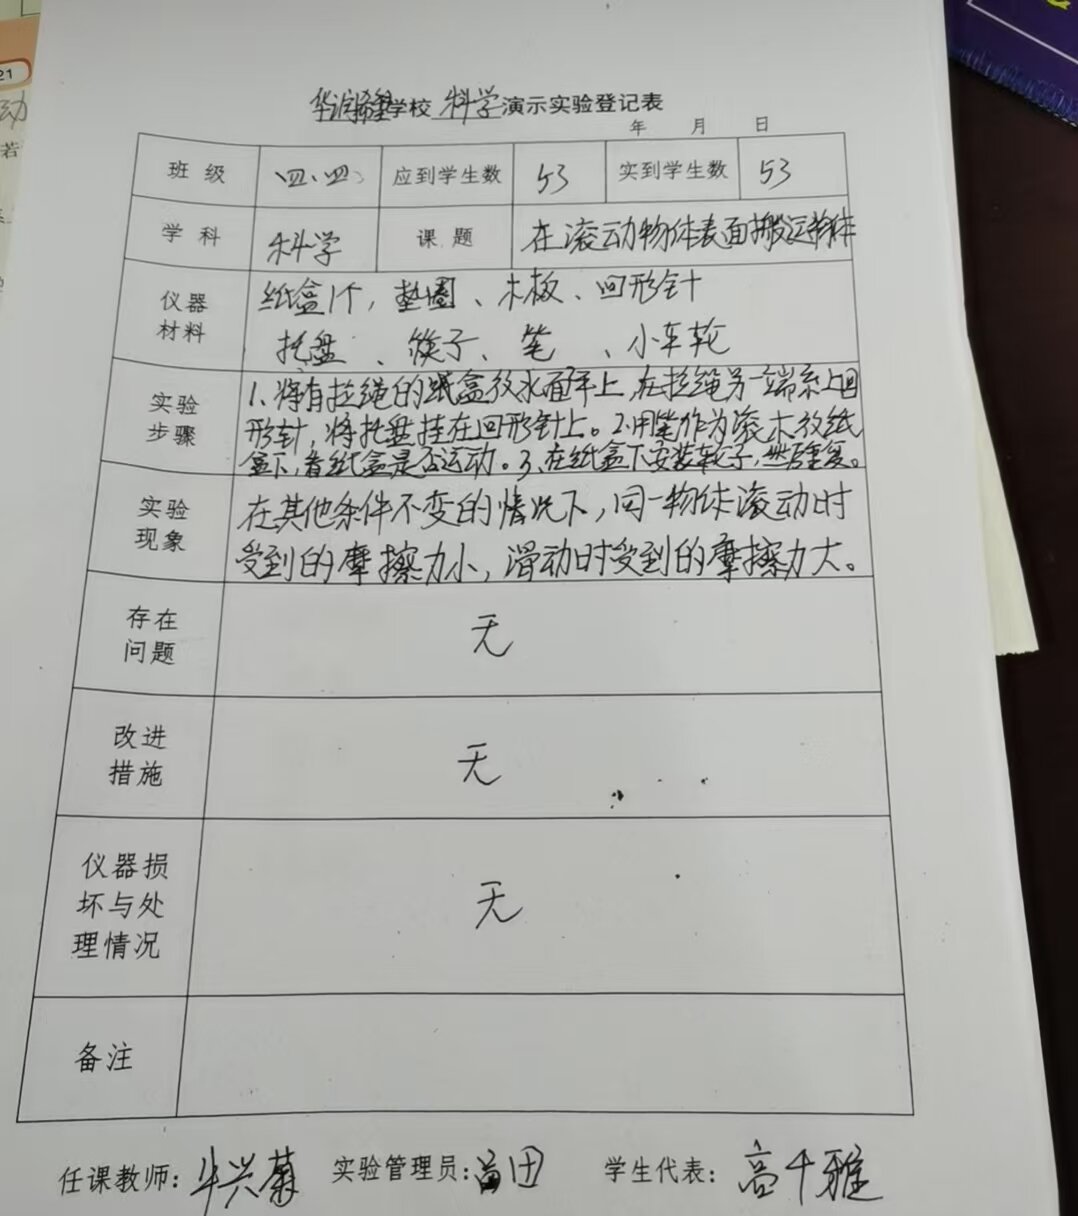 21
动
若
学校 科学演示实验登记表
年 月 日
班级 四、四 应到学生数 53 实到学生数 53
学科 科学 课题 在滚动物体表面搬运物体
仪器材料 纸盒1个，垫圈、木板、回形针
托盘、筷子、笔、小车轮
实验步骤 1、将有拉绳的纸盒放水面平上，在拉绳另一端系上回
形针，将托盘挂在回形针上。2、用笔作为滚木放纸
盒下，看纸盒是否运动。3、在纸盒下安装轮子，然后重复。
实验现象 在其他条件不变的情况下，同一物体滚动时
受到的摩擦力小，滑动时受到的摩擦力大。
存在问题 无
改进措施 无
仪器损坏与处理情况 无
备注
任课教师：牛兴菊 实验管理员： 田 学生代表：高千雅